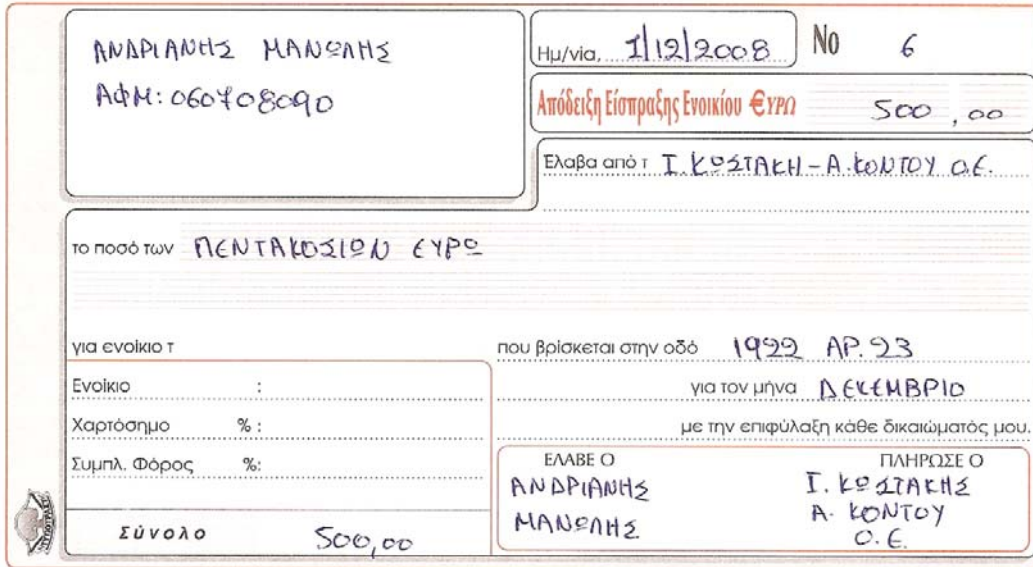 ΑΝΔΡΙΑΝΗΣ ΜΑΝΩΛΗΣ
ΑΦΜ: 060708090
Ημ/νία, 1/12/2008 Νο 6
Απόδειξη Είσπραξης Ενοικίου €ΥΡΩ 500,00
Έλαβα από τ Ι. ΚΩΣΤΑΚΗ - Α. ΚΟΝΤΟΥ Ο.Ε.
το ποσό των ΠΕΝΤΑΚΟΣΙΩΝ ΕΥΡΩ
για ενοίκιο τ που βρίσκεται στην οδό 1922 ΑΡ. 23
Ενοίκιο : για τον μήνα ΔΕΚΕΜΒΡΙΟ
Χαρτόσημο % : με την επιφύλαξη κάθε δικαιώματός μου.
Συμπλ. Φόρος %:
Σύνολο 500,00
ΕΛΑΒΕ Ο
ΑΝΔΡΙΑΝΗΣ
ΜΑΝΩΛΗΣ
ΠΛΗΡΩΣΕ Ο
Ι. ΚΩΣΤΑΚΗΣ
Α. ΚΟΝΤΟΥ
Ο.Ε.